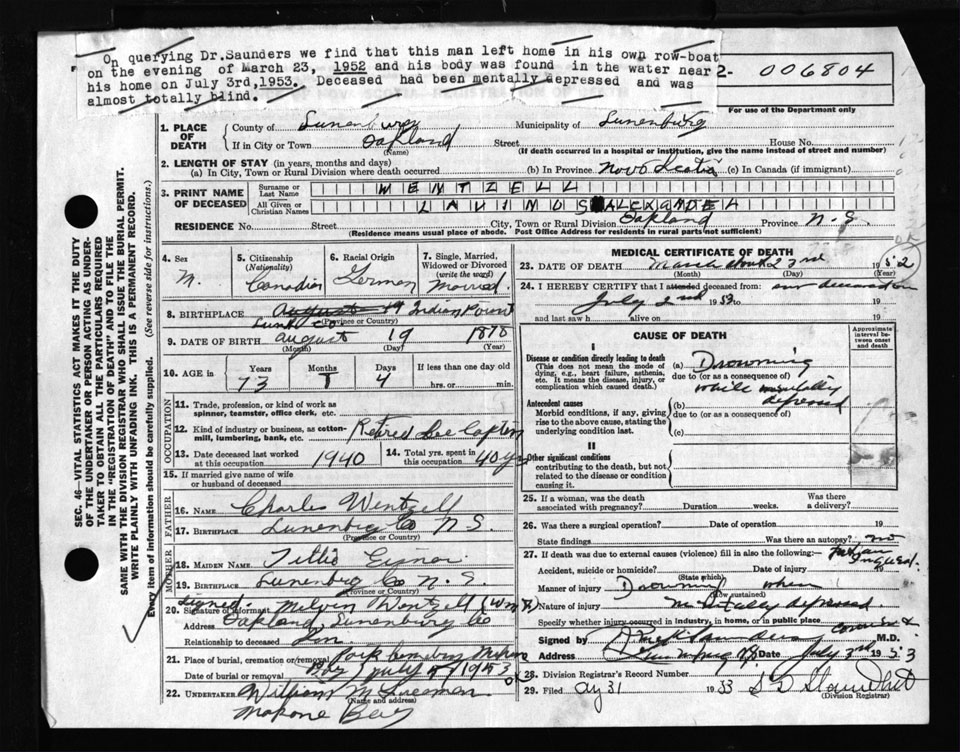 On querying Dr.Saunders we find that this man left home in his own row-boat
on the evening of March 23, 1952 and his body was found in the water near
his home on July 3rd,1953. Deceased had been mentally depressed and was
almost totally blind.
2- 006804
For use of the Department only
1. PLACE OF DEATH
County of Lunenburg Municipality of Lunenburg
If in City or Town Oakland Street House No.
(Name) (If death occurred in a hospital or institution, give the name instead of street and number)
2. LENGTH OF STAY (in years, months and days)
(a) In City, Town or Rural Division where death occurred (b) In Province Nova Scotia (c) In Canada (if immigrant)
3. PRINT NAME OF DECEASED
Surname or Last Name WENTZELL
All Given or Christian Names LAVINUS ALEXANDER
RESIDENCE No. Street City, Town or Rural Division Oakland Province N.S.
(Residence means usual place of abode. Post Office Address for residents in rural parts not sufficient)
4. Sex M.
5. Citizenship (Nationality) Canadian
6. Racial Origin German
7. Single, Married, Widowed or Divorced (write the word) Married.
8. BIRTHPLACE August 19 Indian Point
Lunb Co (Province or Country)
9. DATE OF BIRTH August 19 1878
(Month) (Day) (Year)
10. AGE Years 73 Months 7 Days 4 If less than one day
hrs. or min.
OCCUPATION
11. Trade, profession, or kind of work as spinner, teamster, office clerk, etc.
12. Kind of industry or business, as cotton-mill, lumbering, bank, etc. Retired Sea Captain
13. Date deceased last worked at this occupation 1940
14. Total yrs. spent in this occupation 40 yrs
15. If married give name of wife or husband of deceased
FATHER
16. NAME Charles Wentzell
17. BIRTHPLACE Lunenburg Co N.S.
(Province or Country)
MOTHER
18. MAIDEN NAME
19. BIRTHPLACE Lunenburg Co N.S.
(Province or Country)
signed.
20. Signature of informant Melvin Wentzell
Address Oakland, Lunenburg Co
Relationship to deceased Son
21. Place of burial, cremation or removal Park Cemetery Mahone
Date of burial or removal Bay July 1953
22. UNDERTAKER William
(Name and address)
Mahone Bay
MEDICAL CERTIFICATE OF DEATH
23. DATE OF DEATH March 23rd 1952
(Month) (Day) (Year)
24. I HEREBY CERTIFY that I attended deceased from
July 2nd 1953 19
and last saw h alive on 19
CAUSE OF DEATH
Approximate interval between onset and death
I
Disease or condition directly leading to death
(This does not mean the mode of dying, e.g., heart failure, asthenia, etc. It means the disease, injury, or complication which caused death.)
(a) Drowning
due to (or as a consequence of)
while mentally depressed
Antecedent causes
Morbid conditions, if any, giving rise to the above cause, stating the underlying condition last.
(b)
due to (or as a consequence of)
(c)
II
Other significant conditions
contributing to the death, but not related to the disease or condition causing it.
25. If a woman, was the death associated with pregnancy? Duration weeks. Was there a delivery?
26. Was there a surgical operation? Date of operation 19
State findings Was there an autopsy? no
27. If death was due to external causes (violence) fill in also the following:—
Accident, suicide or homicide? Date of injury 19
(State which)
Manner of injury Drowning when
(How sustained)
Nature of injury mentally depressed
Specify whether injury occurred in industry, in home, or in public place
Signed by M.D.
Address Lunenburg NS Date July 3rd 1953
28. Division Registrar's Record Number
29. Filed 31 1953
(Division Registrar)
SEC. 46—VITAL STATISTICS ACT MAKES IT THE DUTY
OF THE UNDERTAKER OR PERSON ACTING AS UNDER-
TAKER TO OBTAIN ALL THE PARTICULARS REQUIRED
IN THE "REGISTRATION OF DEATH" AND TO FILE THE
SAME WITH THE DIVISION REGISTRAR WHO SHALL ISSUE THE BURIAL PERMIT.
WRITE PLAINLY WITH UNFADING INK. THIS IS A PERMANENT RECORD.
Every item of information should be carefully supplied. (See reverse side for instructions.)